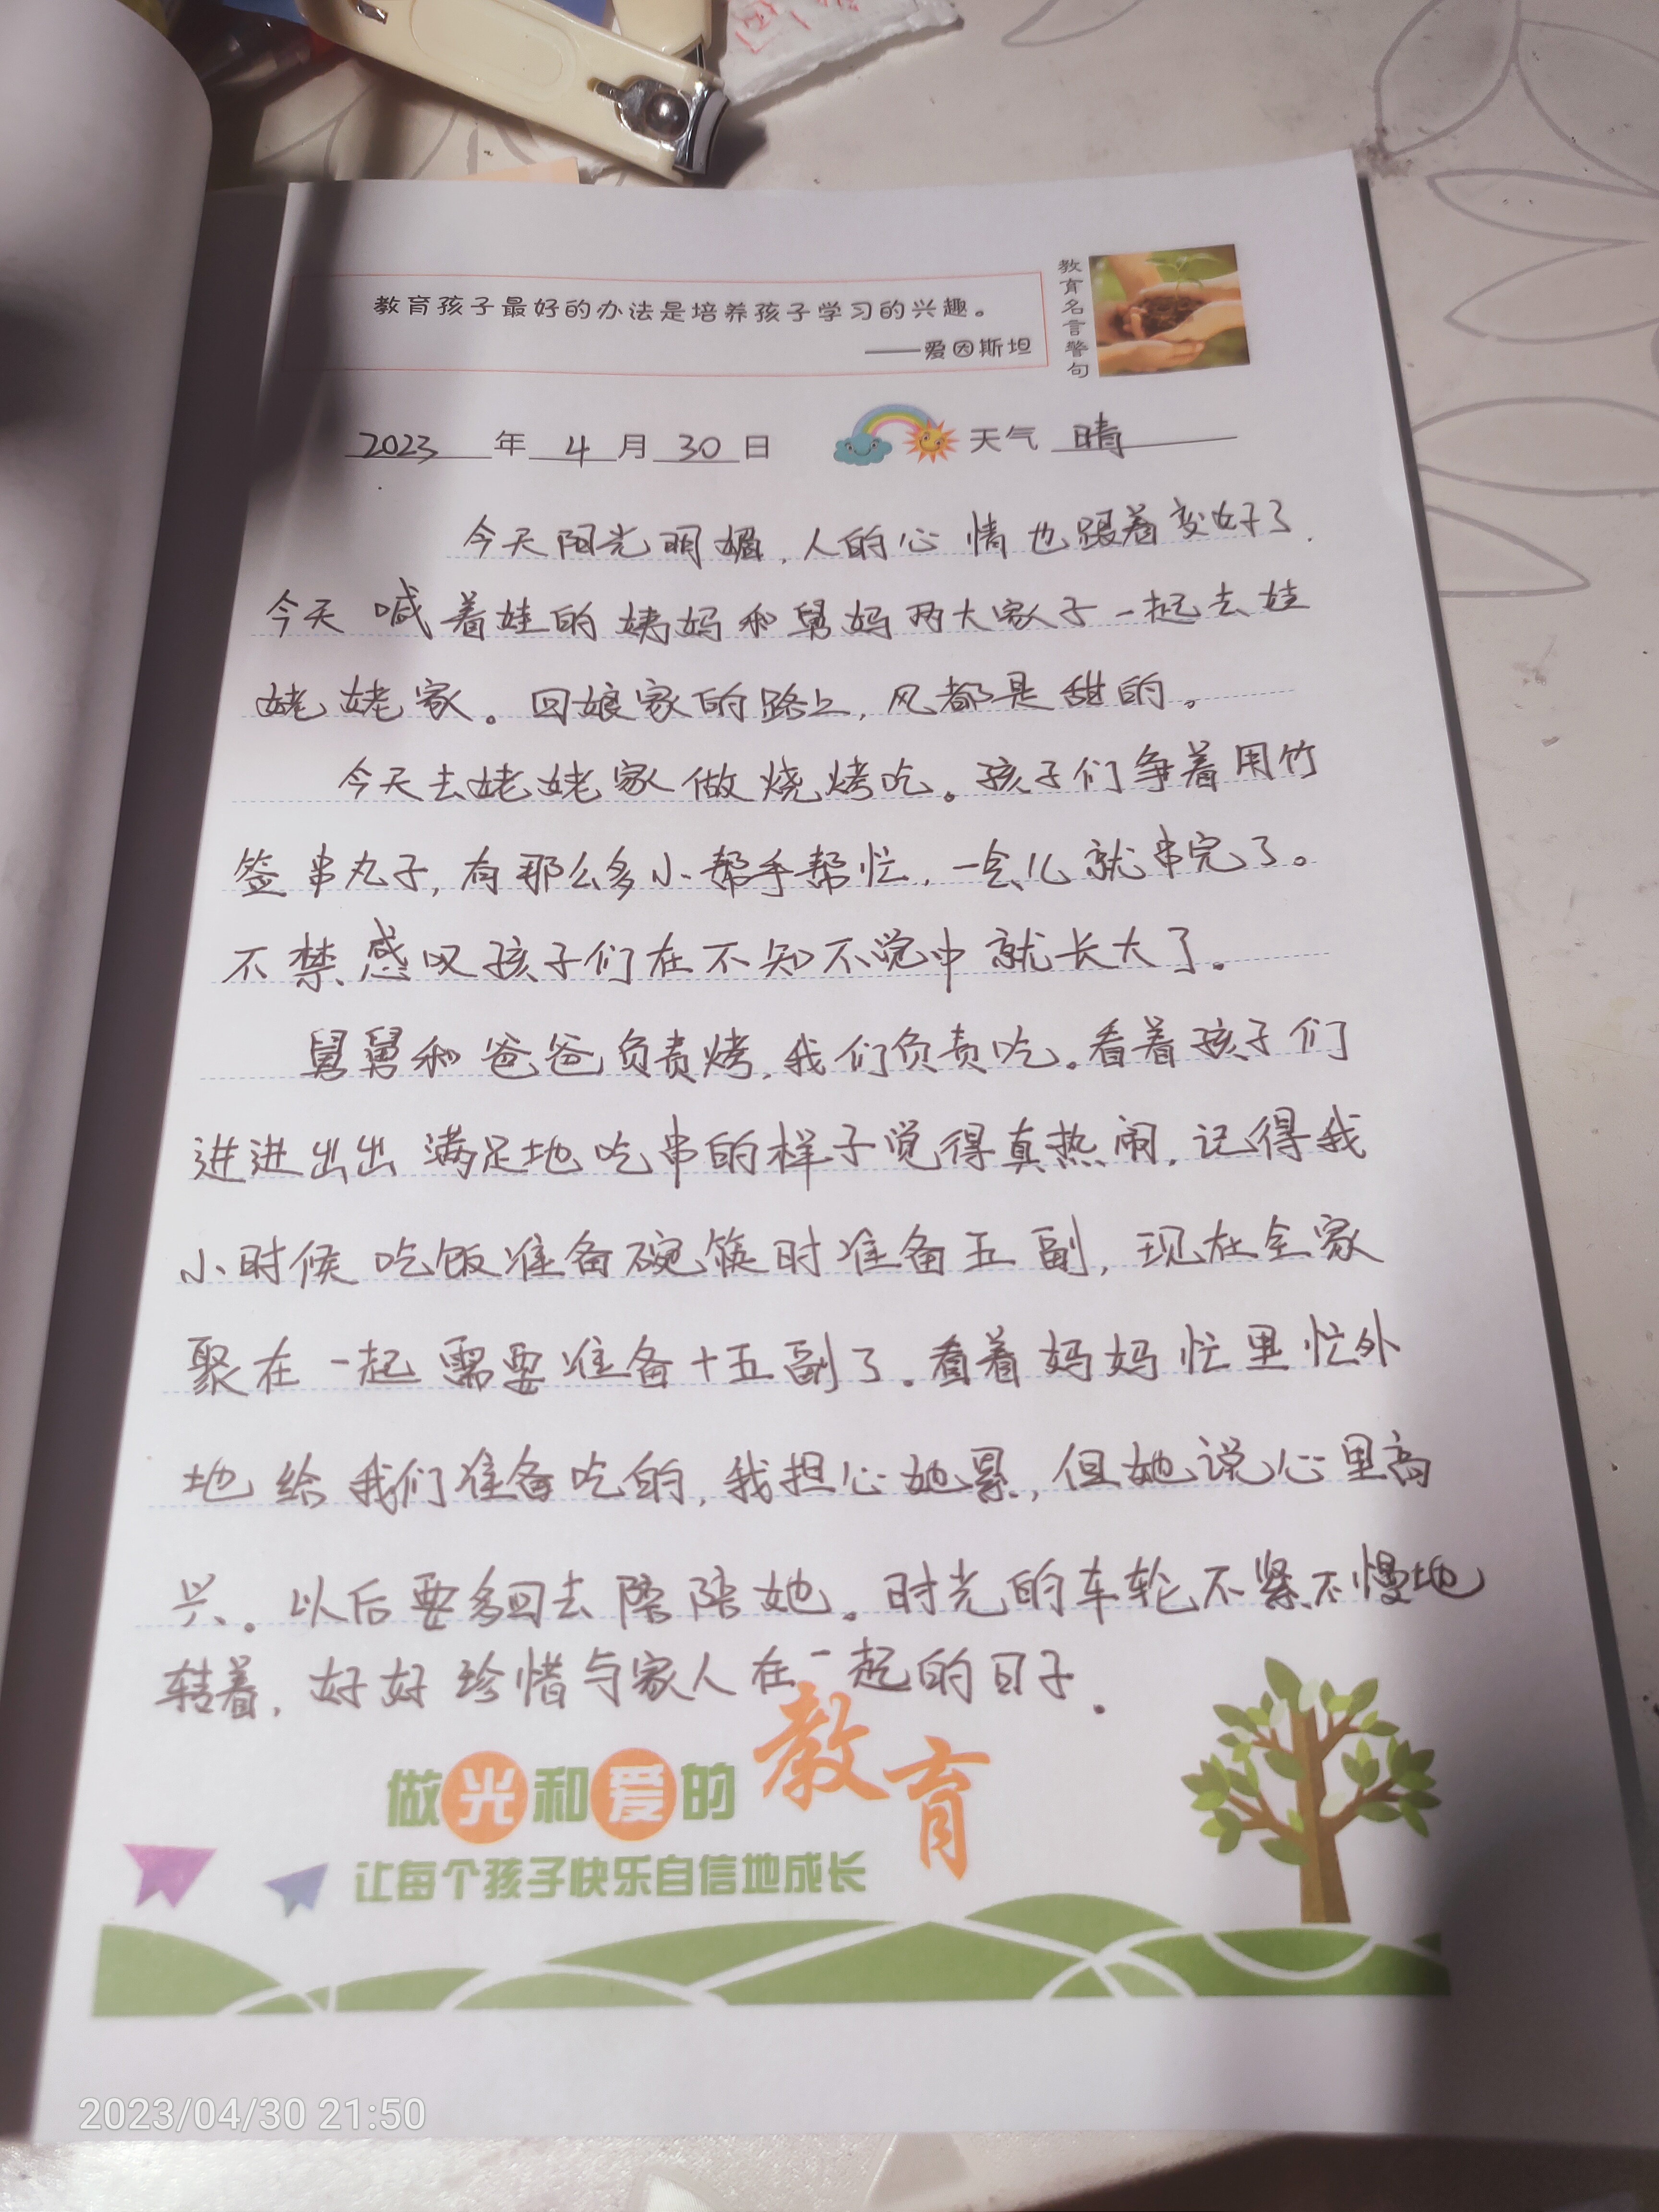 教育孩子最好的办法是培养孩子学习的兴趣。
——爱因斯坦
教育名言警句
2023 年 4 月 30 日 天气 晴
今天阳光明媚,人的心情也跟着变好了.
今天喊着娃的姨妈和舅妈两大家人子一起去娃
姥姥家。回娘家的路上,风都是甜的。
今天去姥姥家做烧烤吃。孩子们争着用竹
签串丸子,有那么多小帮手帮忙,一会儿就串完了。
不禁感叹孩子们在不知不觉中就长大了。
舅舅和爸爸负责烤,我们负责吃。看着孩子们
进进出出满足地吃串的样子觉得真热闹,记得我
小时候吃饭准备碗筷时准备五副,现在全家
聚在一起需要准备十五副了.看着妈妈忙里忙外
地给我们准备吃的,我担心她累,但她说心里高
兴。以后要多回去陪陪她。时光的车轮不紧不慢地
转着,好好珍惜与家人在一起的日子.
做光和爱的教育
让每个孩子快乐自信地成长
2023/04/30 21:50